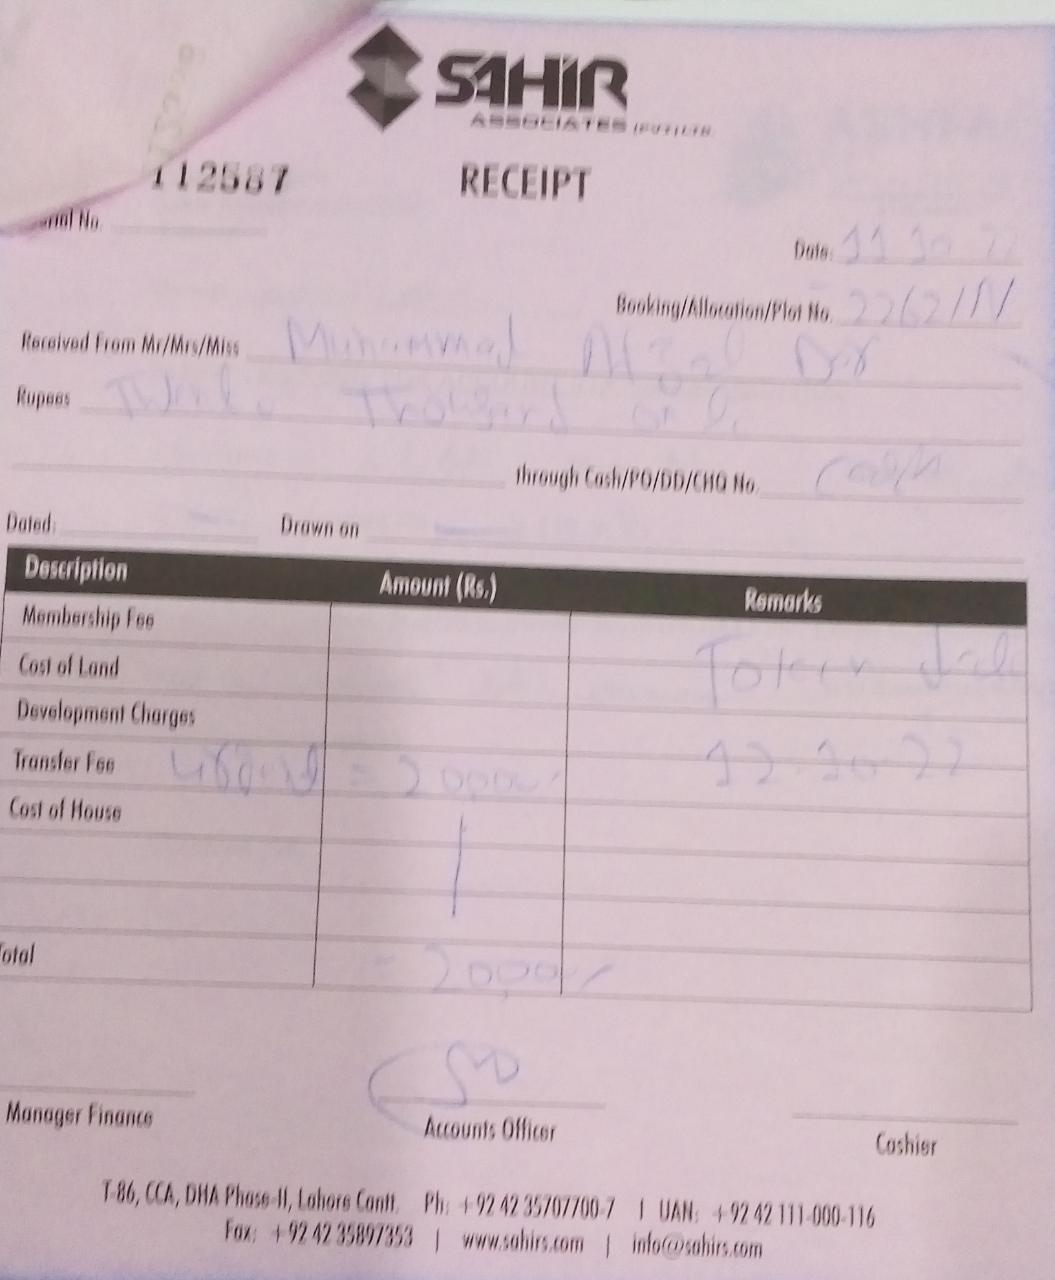 SAHIR
ASSOCIATES (PVT) LTD.
112587
RECEIPT
Serial No.
Date: 11 10 22
Booking/Allocation/Plot No. 2262/N
Received From Mr/Mrs/Miss Muhammad Afzal
Rupees Thousand only
through Cash/PO/DD/CHQ No. Cash
Dated: — Drawn on —
Description Amount (Rs.) Remarks
Membership Fee
Cost of Land Token
Development Charges
Transfer Fee = 20,000/- 12-10-22
Cost of House
Total = 20,000/-
Manager Finance Accounts Officer Cashier
T-86, CCA, DHA Phase-II, Lahore Cantt. Ph: +92 42 35707700-7 | UAN: +92 42 111-000-116
Fax: +92 42 35897353 | www.sahirs.com | info@sahirs.com